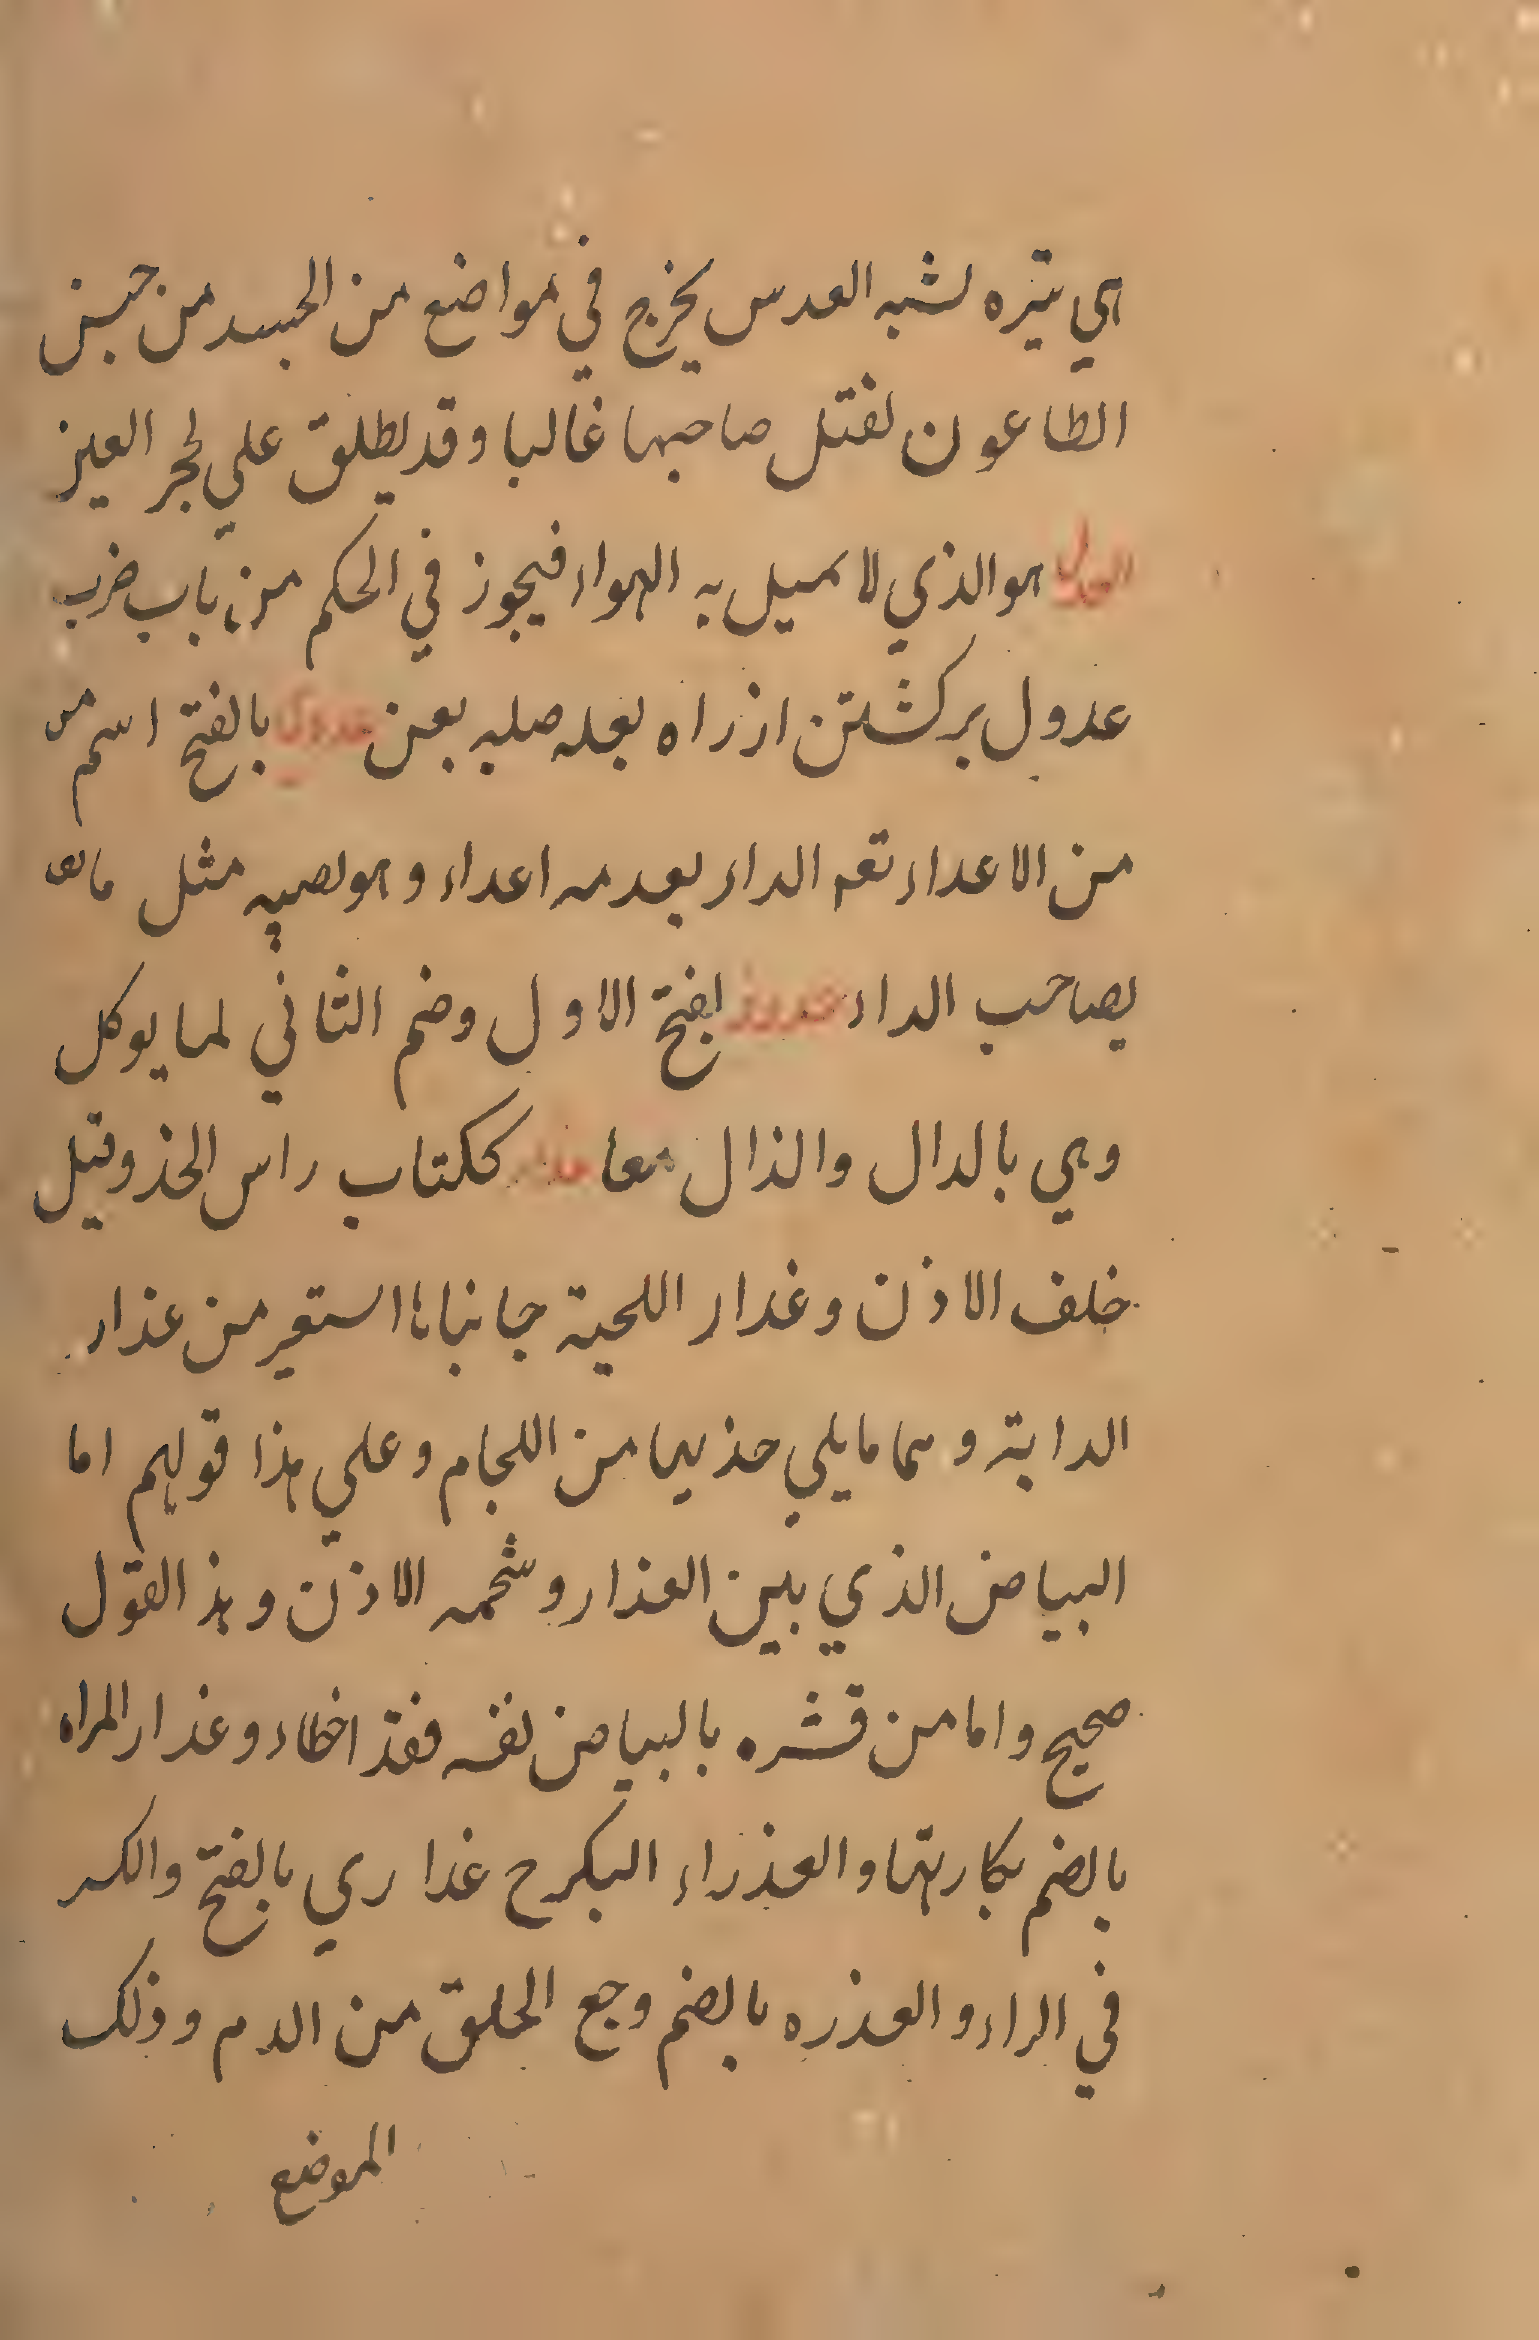 هي بثره لشبه العدس يخرج في مواضع من الجسد من جنس
الطاعون لقتل صاحبها غالبا وقد يطلق علي لحجر العين
العدل هو الذي لا يميل به الهواء فيجوز في الحكم من باب ضرب
عدول برگشتن از راه بعله صلبه بعن عدوي بالفتح اسم من
من الاعداء تعم الداء بعد مه اعداء وهو لصيبه مثل ما
بصاحب الداء بفتح الاول وضم الثاني لما يوكل
وهي بالدال والذال معا عذار ككتاب راس الخذ وقيل
خلف الاذن وغدار اللحية جانباها استعير من عذار
الدابة وهما ما يلي خذيها من اللجام وعلي هذا قولهم اما
البياض الذي بين العذار وشحمه الاذن وهذ القول
صحيح واما من قشره بالبياض نفسه فقذ اخطاء وغذار المراه
بالضم بكارتها والعذراء البكر ح غذا ري بالفتح والكسر
في الراء والعذره بالضم وجع الحلق من الدم وذلك
الموضع